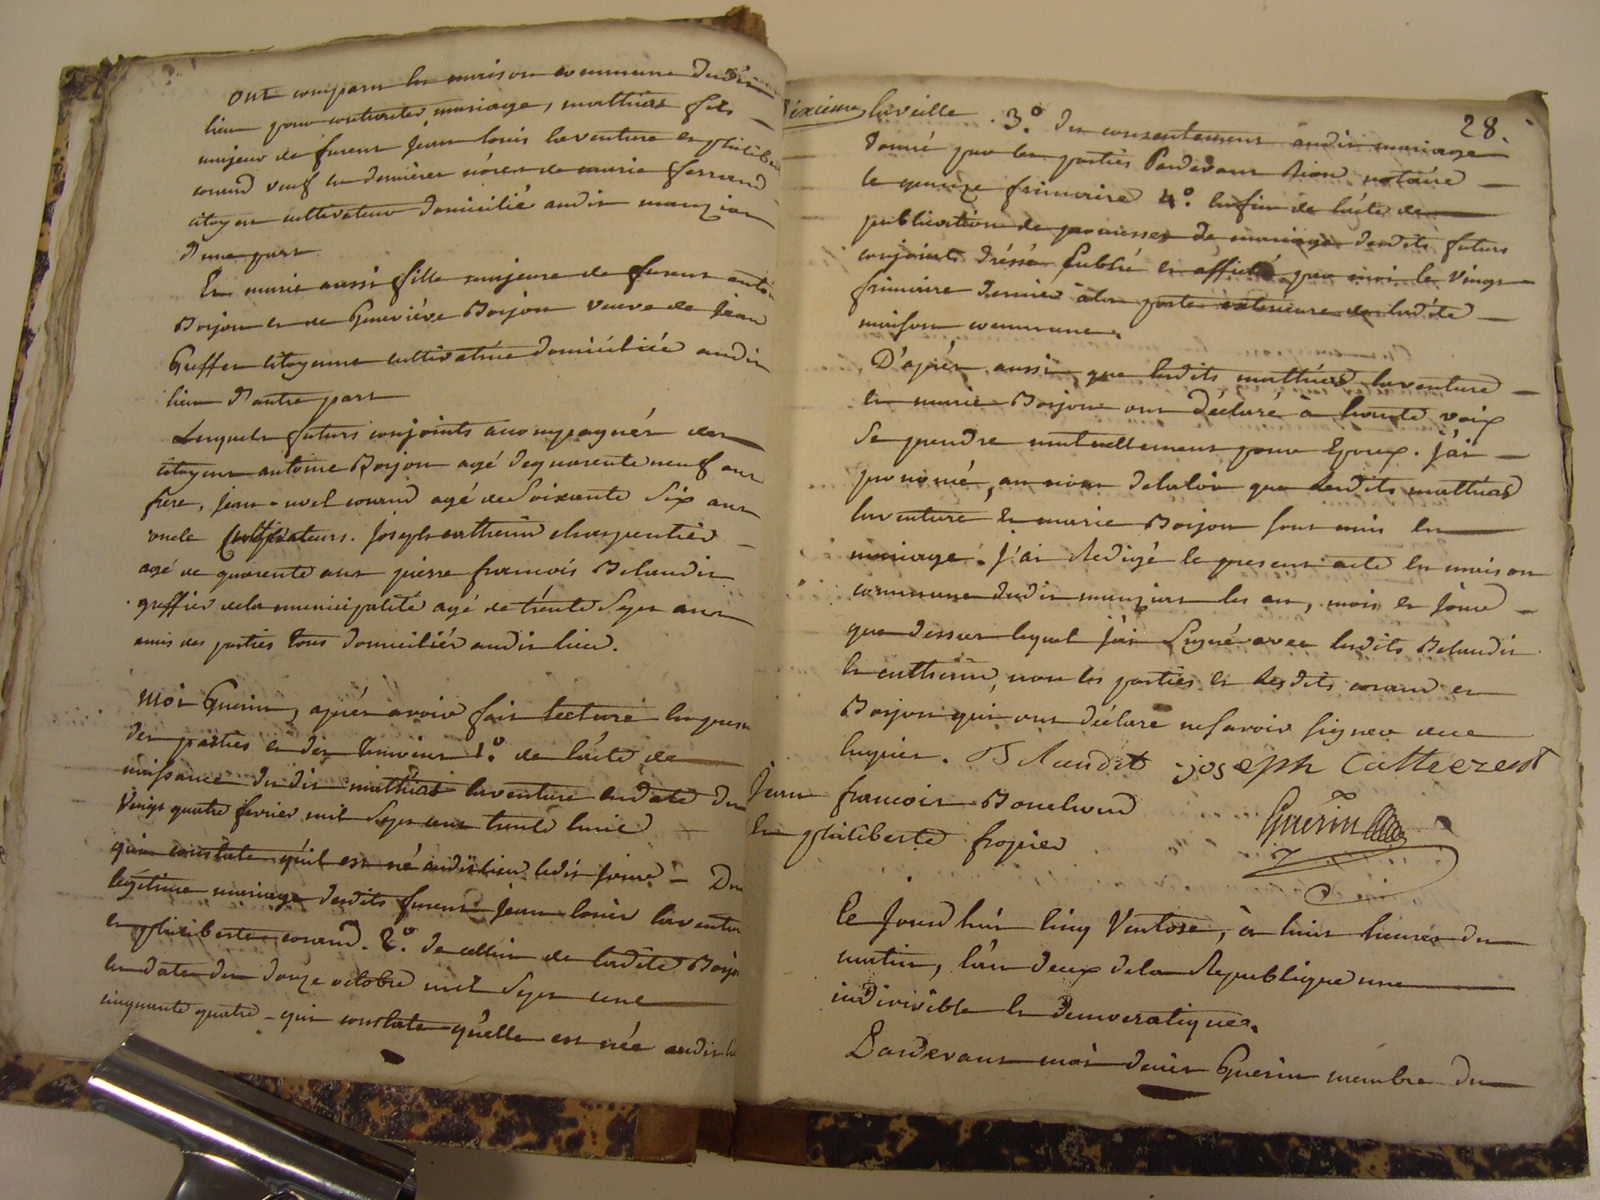 ont comparu en maison commune dudit
lieu pour contracter mariage, matthias fils
majeur de furent jean louis laventure et philiberte
conand veuf en dernières nôces de marie ferrand
citoyen cultivateur domicilié audit manziat
d'une part
Et marie aussi fille majeure de furent antoine
Boyon et de Geneviève Boyon veuve de jean
Greffet citoyenne cultivatrice domiciliée audit
lieu d'autre part
Lesquels futurs conjoints accompagnés des
citoyens antoine Boyon agé de quarante neuf ans
frère, jean conand agé de soixante six ans
oncle cultivateurs. joseph catherin charpentier
agé de quarante ans pierre francois Belaudit
greffier de la municipalité agé de trente sept ans
amis des parties tous domiciliés audit lieu.
moi Guerin, après avoir fait lecture en presence
des parties et des temoins 1.º de l'acte de
naissance dudit matthias laventure en date du
vingt quatre fevrier mil sept cent trente huit
qui constate qu'il est né audit lieu ledit jour - Du
legitime mariage desdits furent jean louis laventure
et philiberte conand. 2.º de celui de ladite Boyon
en date du douze octobre mil sept cent
cinquante quatre - qui constate qu'elle est née audit lieu
28.
la veille. 3.º du consentement audit mariage
donné par les parties Pardevant notaire
le quinze frimaire 4.º Enfin de l'acte de
publication de promesses de mariage desdits futurs
conjoints dressé publié et affiché par moi le vingt
frimaire dernier a la porte extérieure de ladite
maison commune.
D'après aussi que lesdits matthias laventure
et marie Boyon ont déclaré a haute voix
se prendre mutuellement pour Epoux. j'ai
prononcé, au nom de la loi que lesdits matthias
laventure et marie Boyon sont unis en
mariage. j'ai Redigé le present acte en maison
commune dudit manziat les an, mois et jour
que dessus lequel j'ai signé avec lesdits Belaudit
et catherin, non les parties et lesdits conand et
Boyon qui ont déclaré ne savoir signer de ce
Enquis. Belaudit joseph
jean francois Bouchard
Guerin
en philiberte
Ce jourd'hui cinq Ventose, à huit heures du
matin, l'an deux de la Republique une
indivisible et democratique.
Pardevant moi denis Guerin membre du